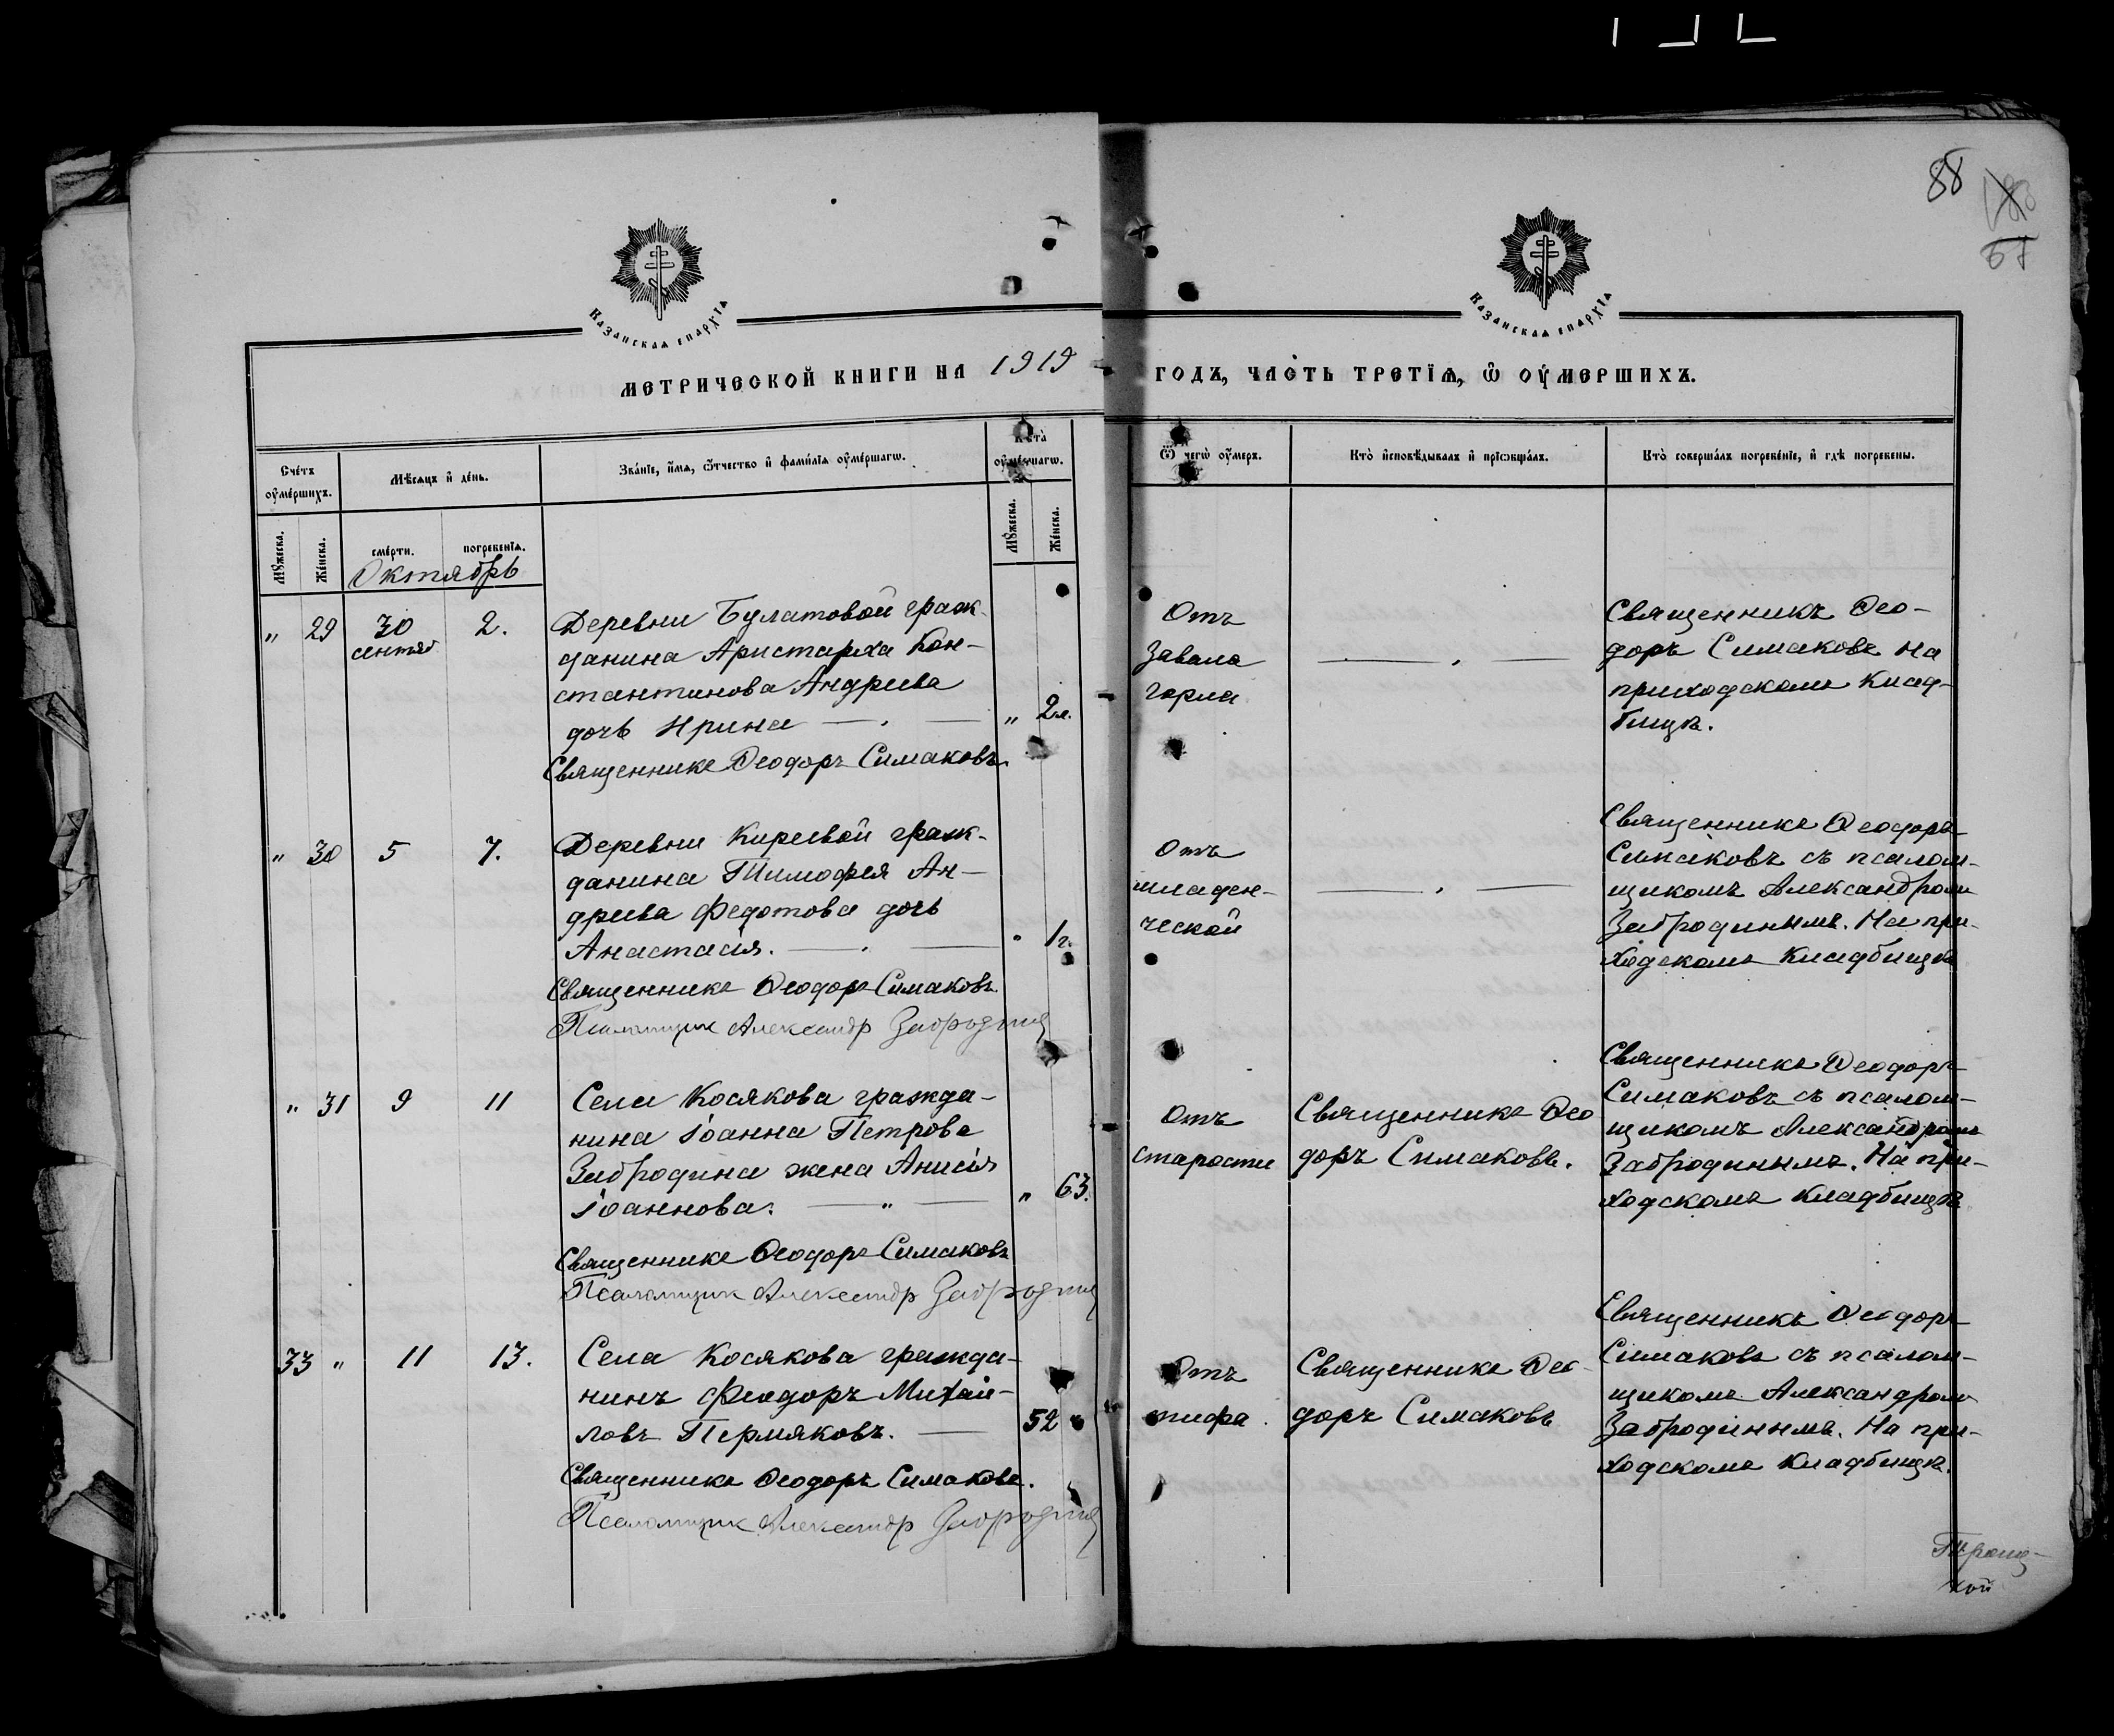 88
67
Казанская епархїѧ
Казанская епархїѧ
метрической книги на 1919
годъ, часть третїѧ, ѿ оу҆мершихъ.
Счетъ оу҆ме́ршихъ.
Мѣсѧцъ и҆ де́нь.
Зва́нїе, и҆́мѧ, ѻ҆́тчество и҆ фами́лїѧ оу҆ме́ршагѡ.
Лѣта̀ оу҆ме́ршагѡ.
Ѿ чегѡ̀ оу҆́меръ.
Кто̀ и҆сповѣ́дывалъ и҆ прїѡбща́лъ.
Кто̀ соверша́лъ погребе́нїе, и҆ гдѣ̀ погребены.
Мꙋ́жеска.
Же́нска.
сме́рти.
погребе́нїѧ.
Мꙋ́жеска.
Же́нска.
Октябрь
" 29 30 сентяб 2.
Деревни Булатовой граж-
данина Аристарха Кон-
стантинова Андреева
дочь Ирина — . — " 2 м.
Священникъ Ѳеодоръ Симаковъ.
Отъ
завала
горла
— . —
Священникъ Ѳео-
доръ Симаковъ на
приходскомъ клад-
бищѣ.
" 30 5 7.
Деревни Киреевой граж-
данина Тимофея Ан-
дреева Федотова дочь
Анастасія. — . — " 1 г.
Священникъ Ѳеодоръ Симаковъ.
Псаломщик Александр Забродин
Отъ
младен-
ческой
— . —
Священникъ Ѳеодоръ
Симаковъ съ псалом-
щикомъ Александромъ
Забродинымъ. На при-
ходскомъ кладбищѣ
" 31 9 11
Села Косякова гражда-
нина Іоанна Петрова
Забродина жена Анисія
Іоаннова. — " — " 63.
Священникъ Ѳеодоръ Симаковъ
Псаломщик Александр Забродин
Отъ
старости
Священникъ Ѳео
доръ Симаковъ.
Священникъ Ѳеодоръ
Симаковъ съ псалом-
щикомъ Александромъ
Забродинымъ. На при-
ходскомъ кладбищѣ
33 " 11 13.
Села Косякова гражда-
нинъ Феодоръ Михай-
ловъ Пермяковъ. — 52 "
Священникъ Ѳеодоръ Симаковъ.
Псаломщик Александр Забродин
Отъ
тифа.
Священникъ Ѳео-
доръ Симаковъ
Священникъ Ѳеодоръ
Симаковъ съ псалом-
щикомъ Александромъ
Забродинымъ. На при-
ходскомъ кладбищѣ.
Троиц-
кой